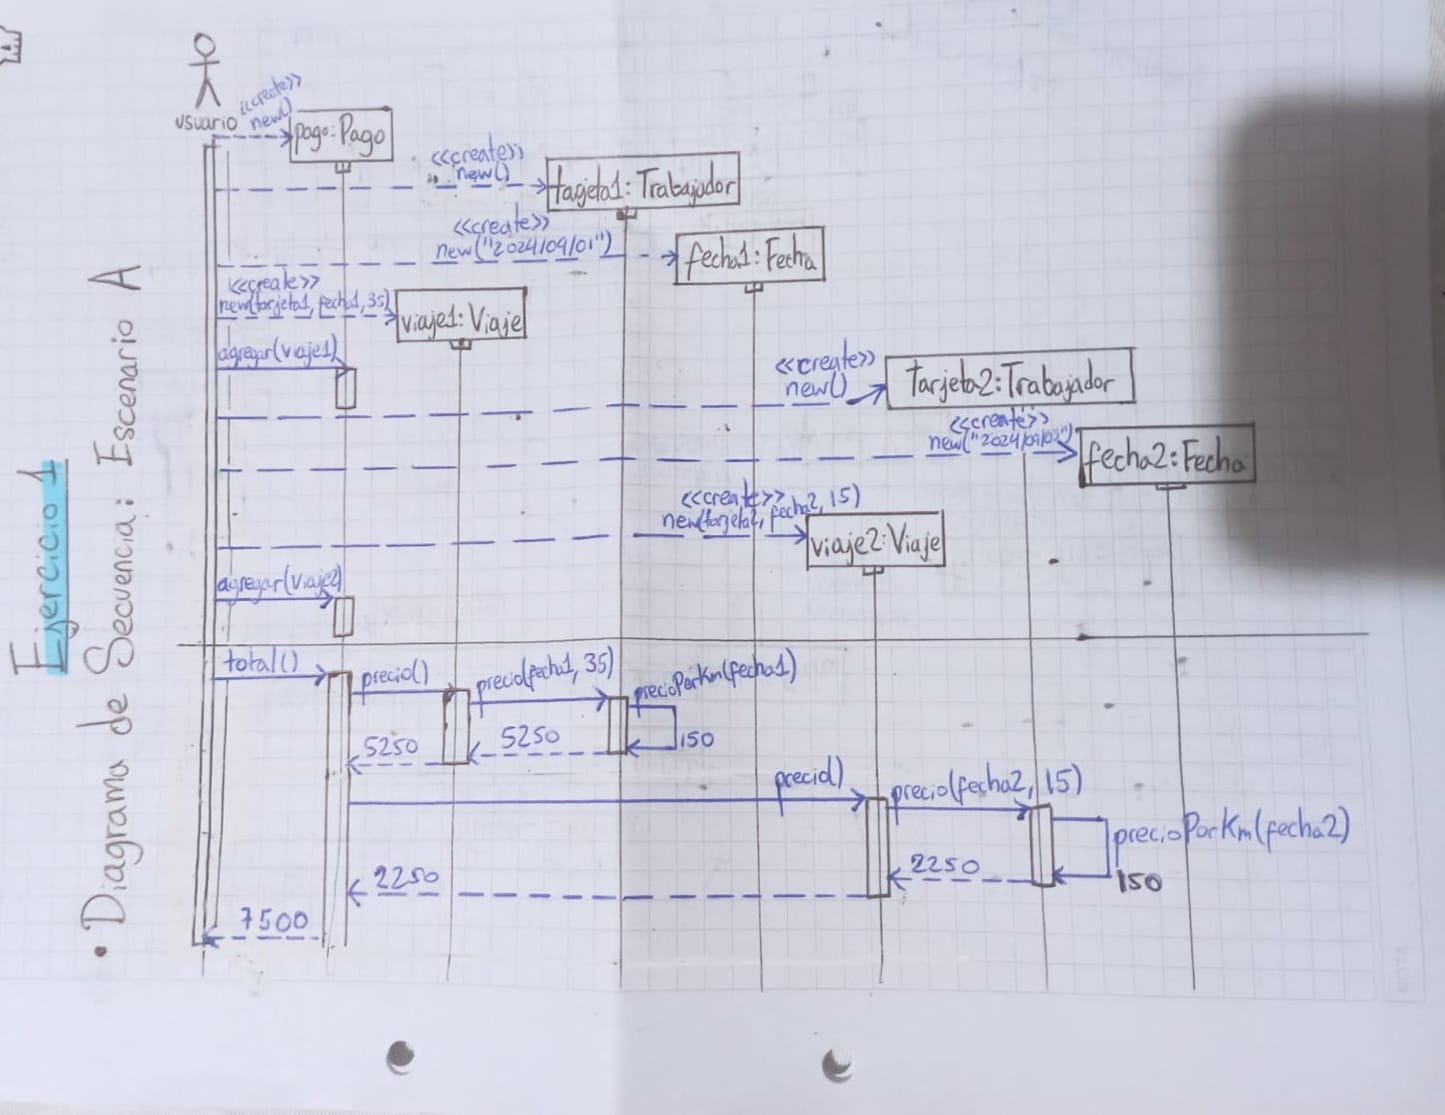 Ejercicio 1
• Diagrama de Secuencia: Escenario A
usuario
<<create>>
new()
pago:Pago
<<create>>
new()
tagjeta1:Trabajador
<<create>>
new("2024/09/01")
fecha1:Fecha
<<create>>
new(tarjeta1, fecha1, 35)
viaje1:Viaje
agregar(viaje1)
<<create>>
new()
tarjeta2:Trabajador
<<create>>
fecha2:Fecha
<<create>>
new(tarjeta2, fecha2, 15)
viaje2:Viaje
agregar(viaje2)
total()
precio()
precio(fecha1, 35)
precioPorKm(fecha1)
150
5250
5250
precio()
precio(fecha2, 15)
precioPorKm(fecha2)
150
2250
2250
7500